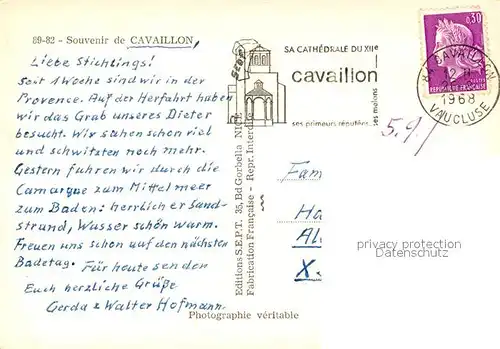 89-82 - Souvenir de CAVAILLON
Liebe Stichlings!
Seit 1 Woche sind wir in der
Provence. Auf der Herfahrt haben
wir das Grab unseres Dieter
besucht. Wir sahen schon viel
und schwitzten noch mehr.
Gestern fuhren wir durch die
Camargue zum Mittelmeer
zum Baden: herrlicher Sand-
strand, Wasser schön warm.
Freuen uns schon auf den nächsten
Badetag. Für heute senden
Euch herzliche Grüße
Gerda & Walter Hofmann.
Photographie véritable
Editions S.E.P.T. 36, Bd Gorbella - NICE
Fabrication Française - Repr. Interdite
SA CATHÉDRALE DU XIIe
cavaillon
ses primeurs réputées
ses melons
0,30
REPUBLIQUE FRANÇAISE
84 CAVAILLON
1968
VAUCLUSE
5.9.
Fam
Ha
Al
X.
privacy protection
Datenschutz